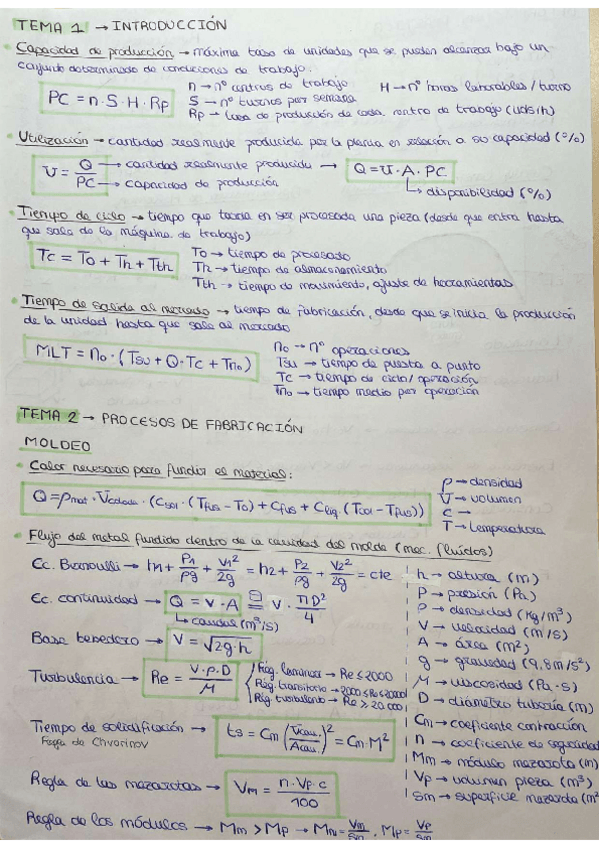 TEMA 1 → INTRODUCCIÓN
• Capacidad de producción → máxima tasa de unidades que se pueden alcanzar bajo un
conjunto determinado de condiciones de trabajo.
PC = n · S · H · Rp
n → nº centros de trabajo H → nº horas laborables / turno
S → nº turnos por semana
Rp → tasa de producción de cada centro de trabajo (uds/h)
• Utilización → cantidad realmente producida por la planta en relación a su capacidad (%)
U = Q/PC
Q → cantidad realmente producida → Q = U · A · PC
PC → capacidad de producción
↳ disponibilidad (%)
• Tiempo de ciclo → tiempo que tarda en ser procesada una pieza (desde que entra hasta
que sale de la máquina de trabajo)
Tc = To + Th + Tth
To → tiempo de procesado
Th → tiempo de almacenamiento
Tth → tiempo de movimiento, ajuste de herramientas
• Tiempo de salida al mercado → tiempo de fabricación, desde que se inicia la producción
de la unidad hasta que sale al mercado
MLT = no · (Tsu + Q · Tc + Tno)
no → nº operaciones
Tsu → tiempo de puesta a punto
Tc → tiempo de ciclo / operación
Tno → tiempo medio por operación
TEMA 2 → PROCESOS DE FABRICACIÓN
MOLDEO
• Calor necesario para fundir el material:
Q = ρmat · Vcolada · (Csol · (Tfus − To) + Cfus + Cliq · (Tcol − Tfus))
ρ → densidad
V → volumen
c →
T → temperatura
• Flujo del metal fundido dentro de la cavidad del molde (mec. fluidos)
Ec. Bernoulli → h1 + P1/ρg + V1²/2g = h2 + P2/ρg + V2²/2g = cte
Ec. continuidad → Q = V · A = V · πD²/4
↳ caudal (m³/s)
Base bebedero → V = √2g·h
Turbulencia → Re = V·ρ·D/μ
Rég. laminar → Re ≤ 2000
Rég. transitorio → 2000 ≤ Re ≤ 20000
Rég. turbulento → Re ≥ 20.000
Tiempo de solidificación → ts = Cm (Vcav./Acav.)² = Cm · M²
Regla de Chvorinov
Regla de las mazarotas → Vm = n · Vp · c / 100
Regla de los módulos → Mm > Mp → Mm = Vm/Sm , Mp = Vp/
h → altura (m)
P → presión (Pa)
ρ → densidad (kg/m³)
V → velocidad (m/s)
A → área (m²)
g → gravedad (9,8 m/s²)
μ → viscosidad (Pa·s)
D → diámetro tubería (m)
Cm → coeficiente contracción
n → coeficiente de seguridad
Mm → módulo mazarota (m)
Vp → volumen pieza (m³)
Sm → superficie mazarota (m²